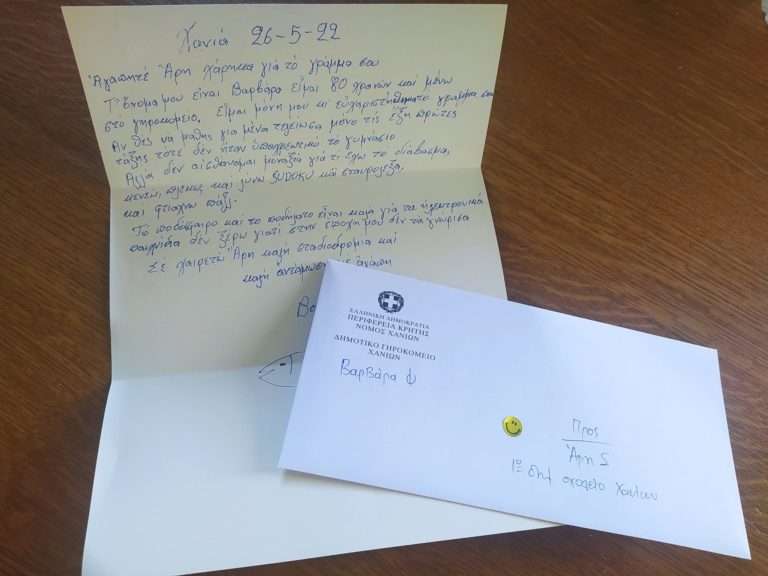 Χανιά 26-5-22
Ἀγαπητέ Ἄρη χάρηκα γιά τό γράμμα σου
Τ' ὄνομα μου εἶναι Βαρβάρα εἶμαι 80 χρονών καί μένω
στό γηροκομείο. Εἶμαι μόνη μου κι εὐχαριστήθηκα τό γράμμα σου
Αν θες νά μαθης για μένα τελείωσα μόνο τίς ἕξη πρώτες
τάξης τότε δέν ἦταν ὑποχρεωτικό τό γυμνάσιο
Αλλά δεν αἰσθάνομαι μοναξιά γιατί ἔχω τό διάβασμα,
κεντώ, πλέκω, καί λύνω SUDOKU καί σταυρόλεξα.
και φτιαχνω πάζλ.
Τό ποδόσφαιρο και το ποδηλατο εἶναι καλά γιά τά ἠλεκτρονικά
παιχνίδια δέν ξέρω γιατι στην εποχή μου δέν τά γνώρισα
Σέ χαιρετώ Ἄρη καλή σταδιοδρομία καί
καλή ἀντάμωση μέ ἀγάπη
Βα
ΕΛΛΗΝΙΚΗ ΔΗΜΟΚΡΑΤΙΑ
ΠΕΡΙΦΕΡΕΙΑ ΚΡΗΤΗΣ
ΝΟΜΟΣ ΧΑΝΙΩΝ
ΔΗΜΟΤΙΚΟ ΓΗΡΟΚΟΜΕΙΟ
ΧΑΝΙΩΝ
Βαρβάρα Φ
Προς
Ἄρη Σ
1º δημ. σχολείο Χανίων